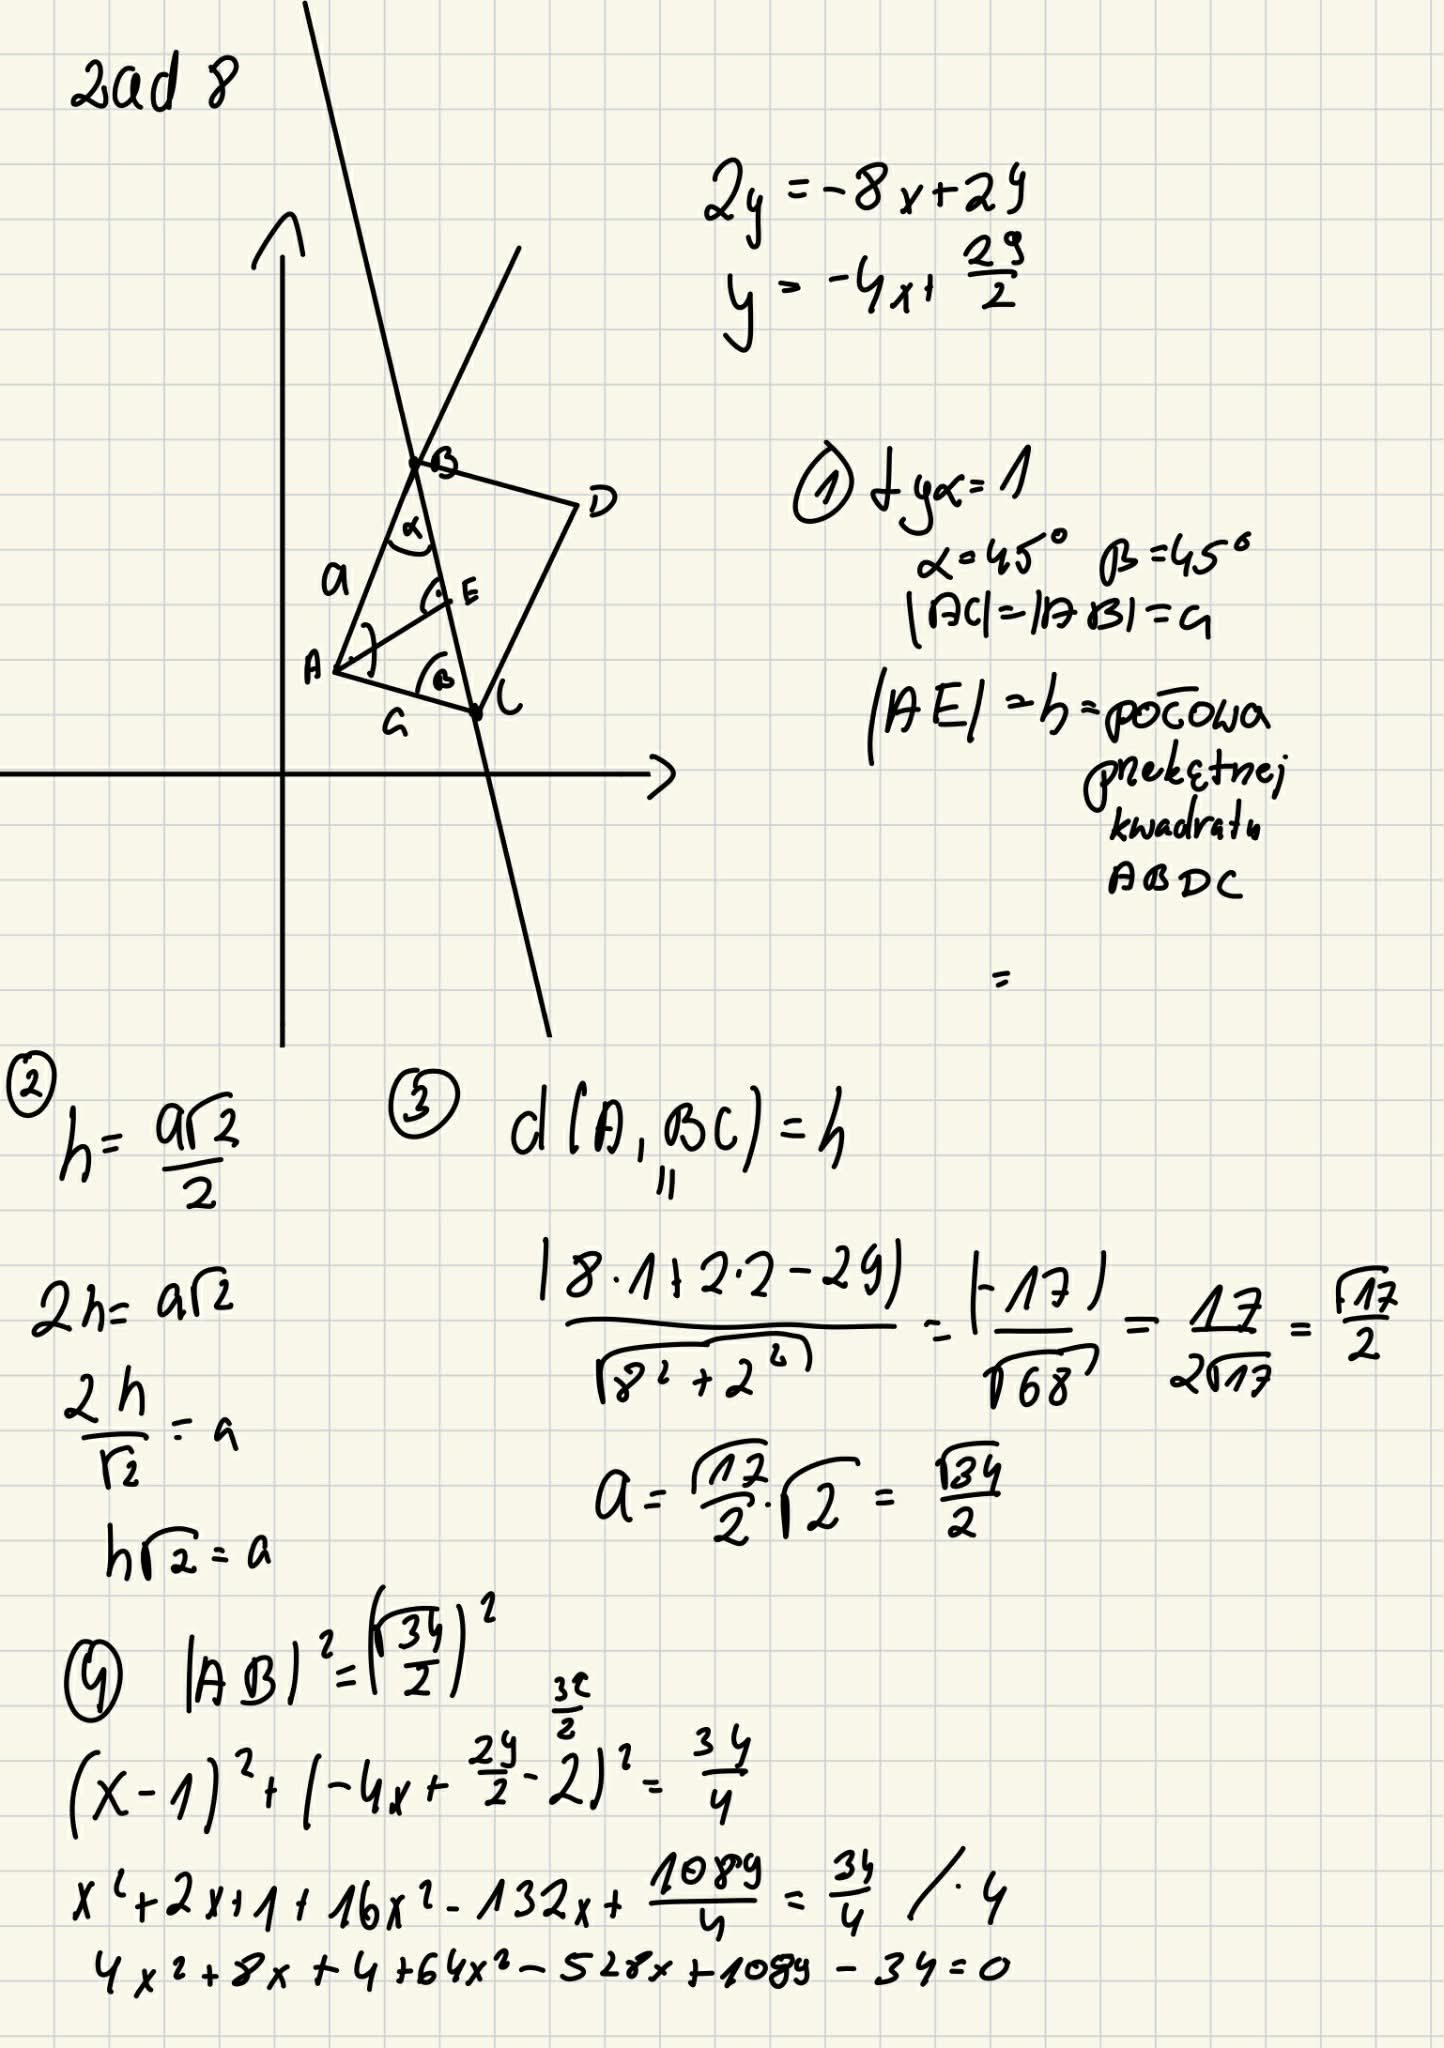 Zad 8
2y = -8x+29
y = -4x+ 29/2
B
D
α
a
E
A
β
C
a
① tgα=1
α=45° β=45°
|AC|=|AB|=a
|AE| = h = połowa
przekętnej
kwadratu
ABDC
=
②
h= a√2/2
2h= a√2
2h/√2 = a
h√2 = a
③ d(A, BC) = h
||
|8·1+2·2-29|/√(8²+2²) = |-17|/√68 = 17/2√17 = √17/2
a= √17/2 · √2 = √34/2
④ |AB|² = (√34/2)²
32/2
(x-1)² + (-4x + 29/2 - 2)² = 34/4
x²+2x+1+16x²-132x+ 1089/4 = 34/4 /·4
4x²+8x+4+64x²-528x+1089-34=0